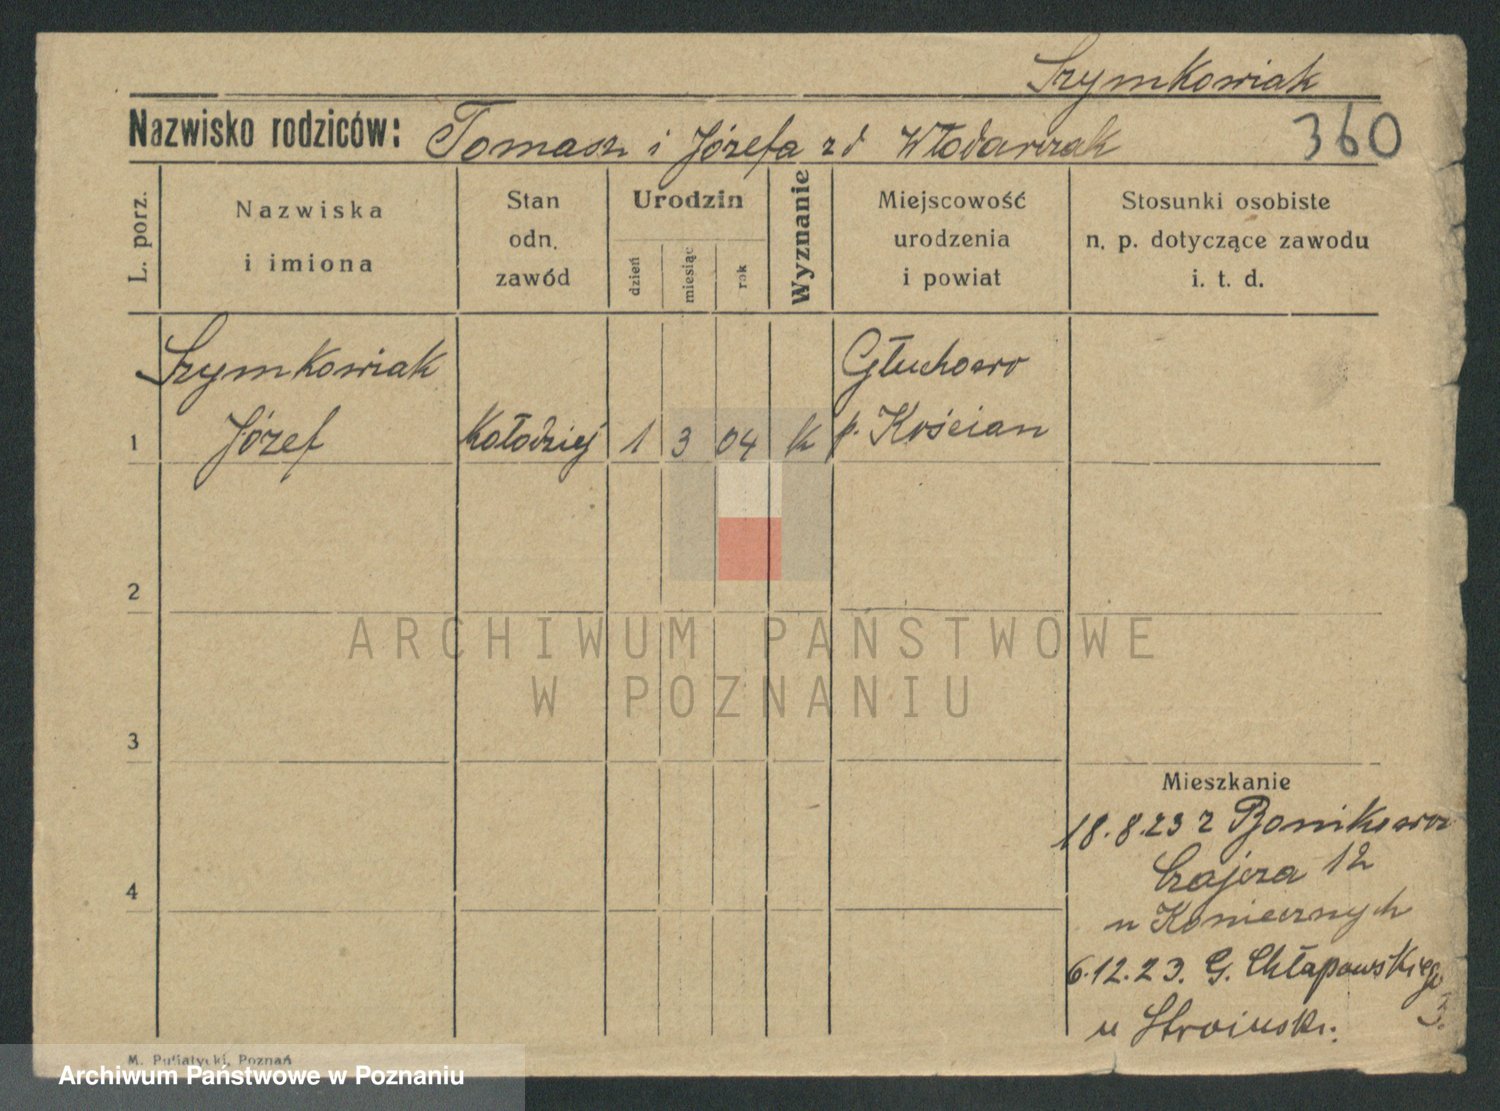 Szymkowiak
Nazwisko rodziców: Tomasz i Józefa zd Włodarczak
360
L. porz.
Nazwiska
i imiona
Stan
odn.
zawód
Urodzin
dzień
miesiąc
rok
Wyznanie
Miejscowość
urodzenia
i powiat
Stosunki osobiste
n. p. dotyczące zawodu
i. t. d.
Szymkowiak Głuchowo
1 Józef Kołodziej 1 3 04 k p. Kościan
2
3
4
ARCHIWUM PAŃSTWOWE
W POZNANIU
Mieszkanie
18.8.23 z Bonikowa
Czajcza 12
u Koniecznych
6.12.23. G. Chłapowskiego
3.
u Stroiński.
M. Pujatycki, Poznań
Archiwum Państwowe w Poznaniu